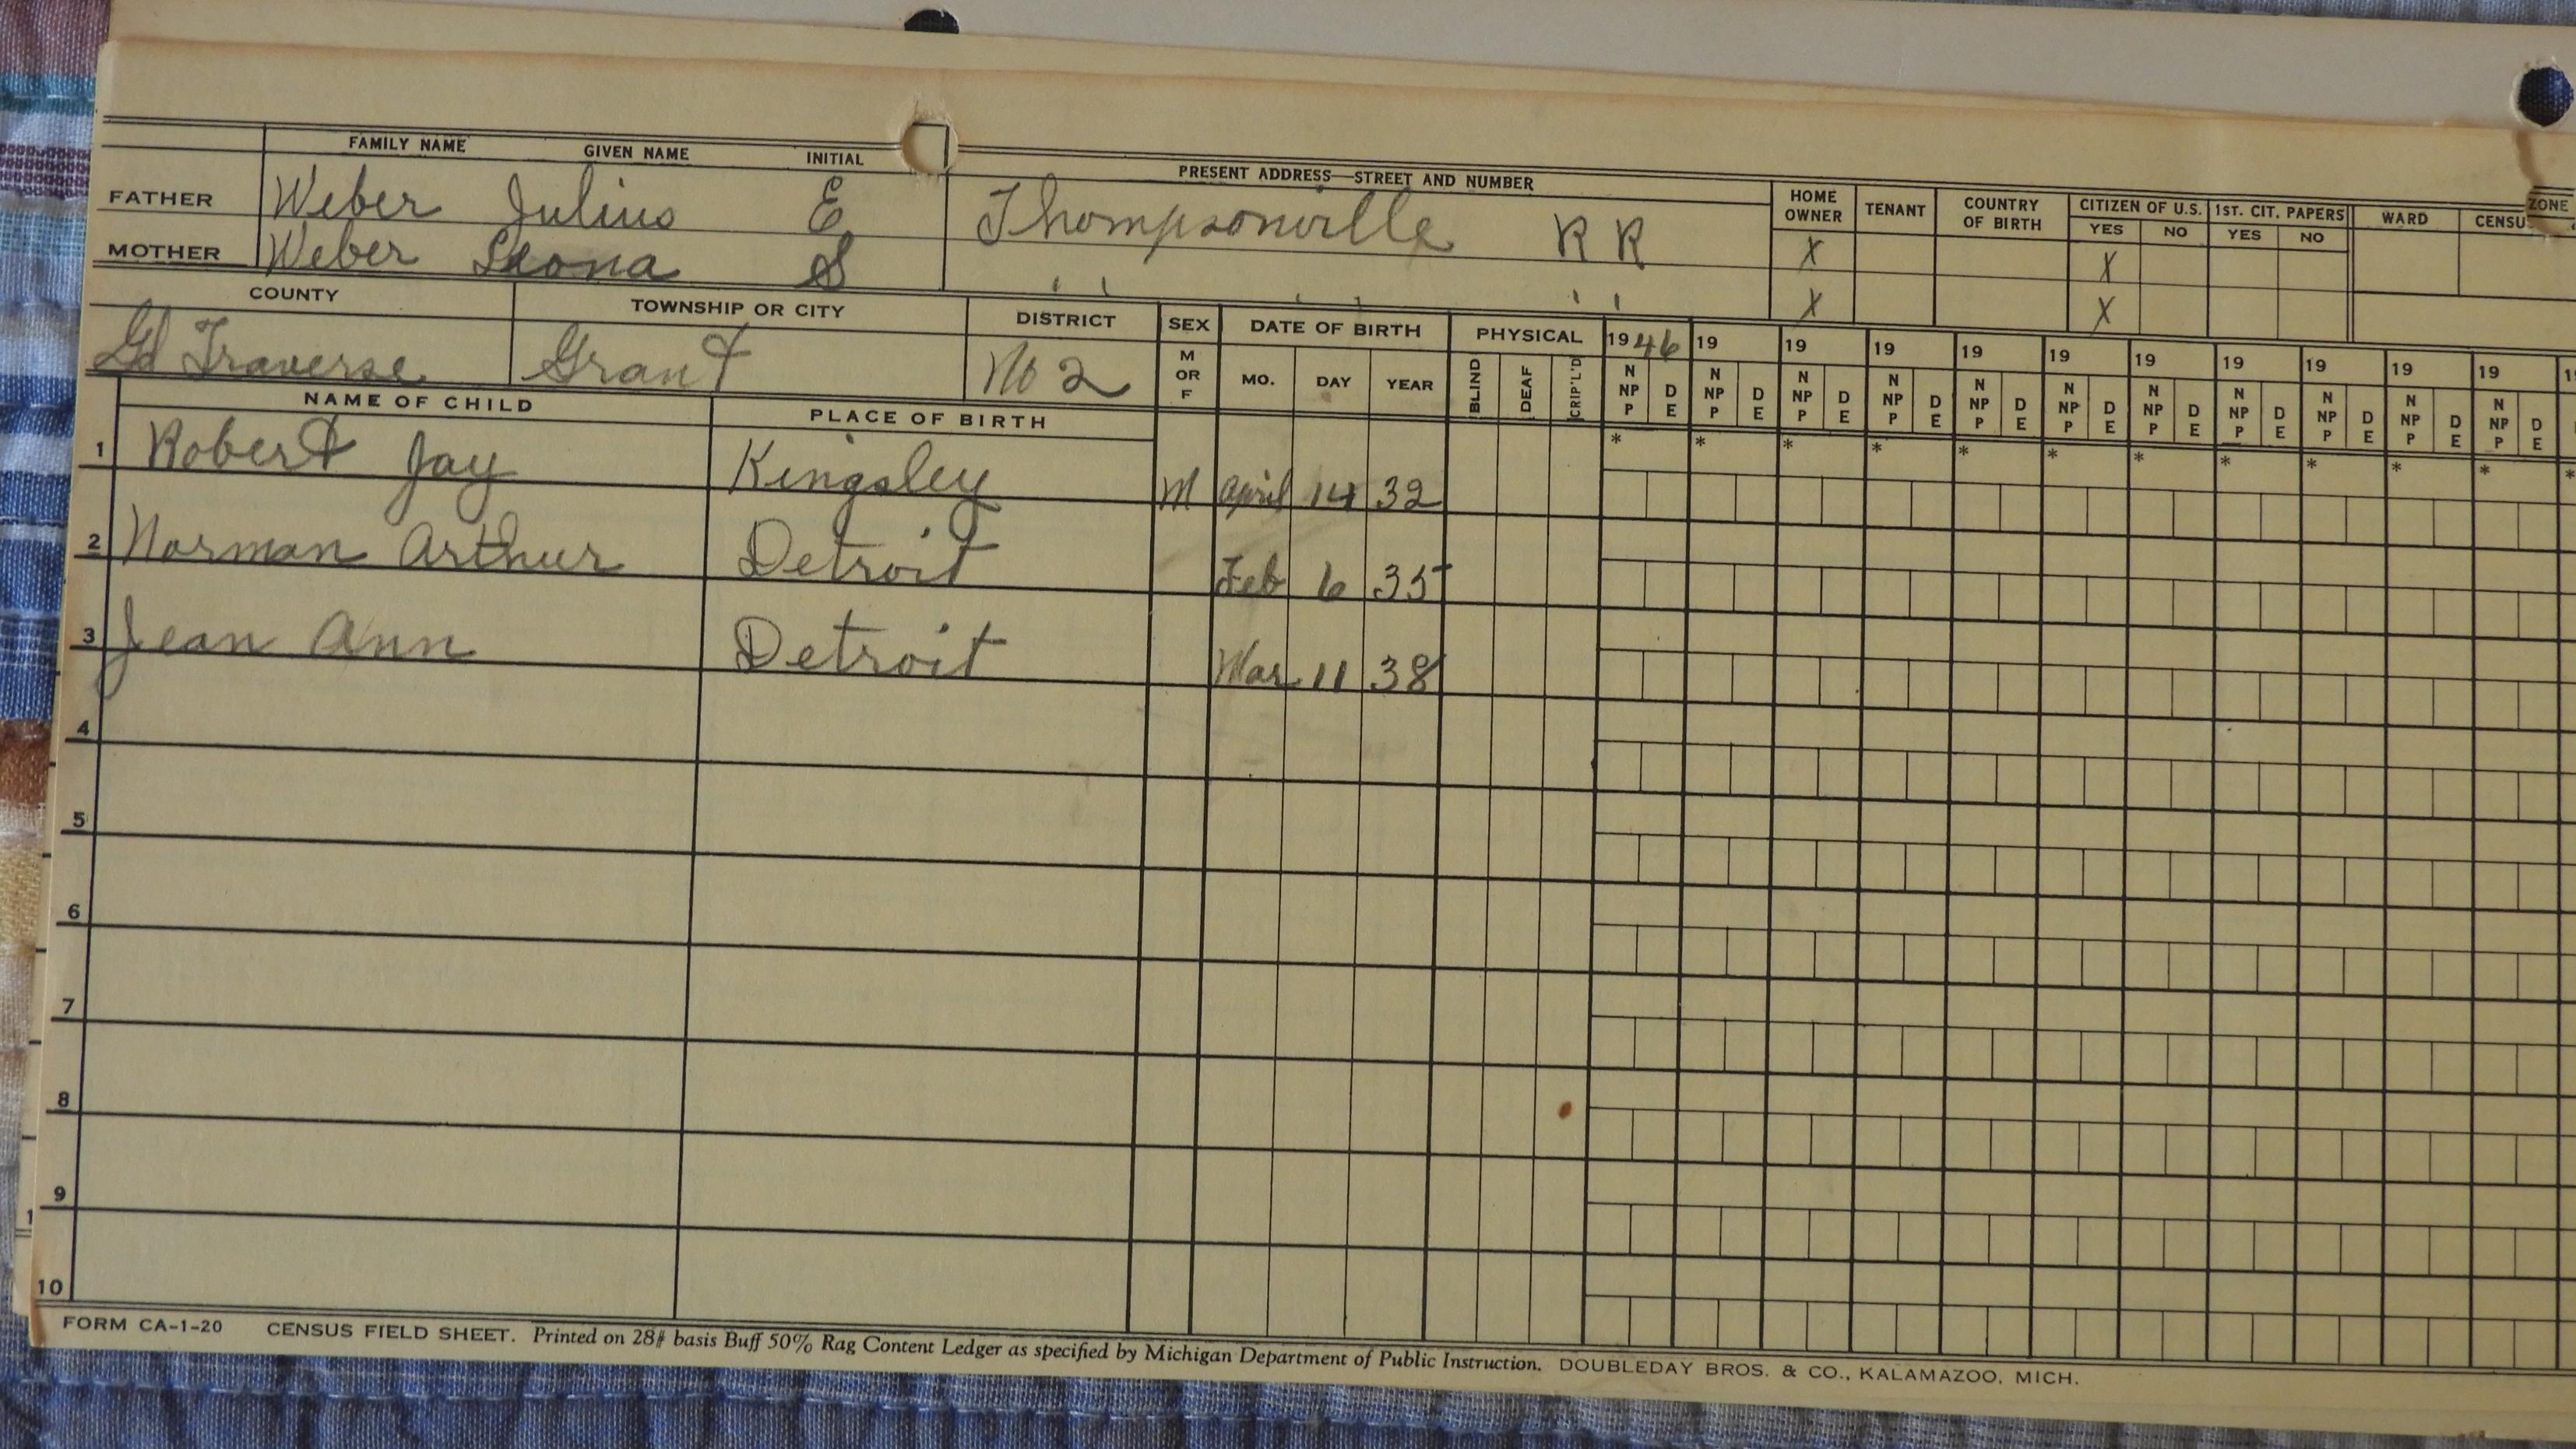 FAMILY NAME GIVEN NAME INITIAL PRESENT ADDRESS—STREET AND NUMBER HOME OWNER TENANT COUNTRY OF BIRTH CITIZEN OF U.S. YES NO 1ST. CIT. PAPERS YES NO WARD CENSU ZONE
FATHER Weber Julius E Thompsonville RR X X
MOTHER Weber Leona S " " " " " " X X
COUNTY TOWNSHIP OR CITY DISTRICT SEX M OR F DATE OF BIRTH MO. DAY YEAR PHYSICAL BLIND DEAF CRIP'L'D 1946 19 19 19 19 19 19 19 19 19 19
Gd Traverse Grant No 2
N NP P D E N NP P D E N NP P D E N NP P D E N NP P D E N NP P D E N NP P D E N NP P D E N NP P D E N NP P D E N NP P D E
NAME OF CHILD PLACE OF BIRTH
* * * * * * * * * * * *
1 Robert Jay Kingsley M April 14 32
2 Norman Arthur Detroit Feb 6 35
3 Jean Ann Detroit Mar 11 38
4
5
6
7
8
9
10
FORM CA-1-20 CENSUS FIELD SHEET. Printed on 28# basis Buff 50% Rag Content Ledger as specified by Michigan Department of Public Instruction. DOUBLEDAY BROS. & CO., KALAMAZOO, MICH.